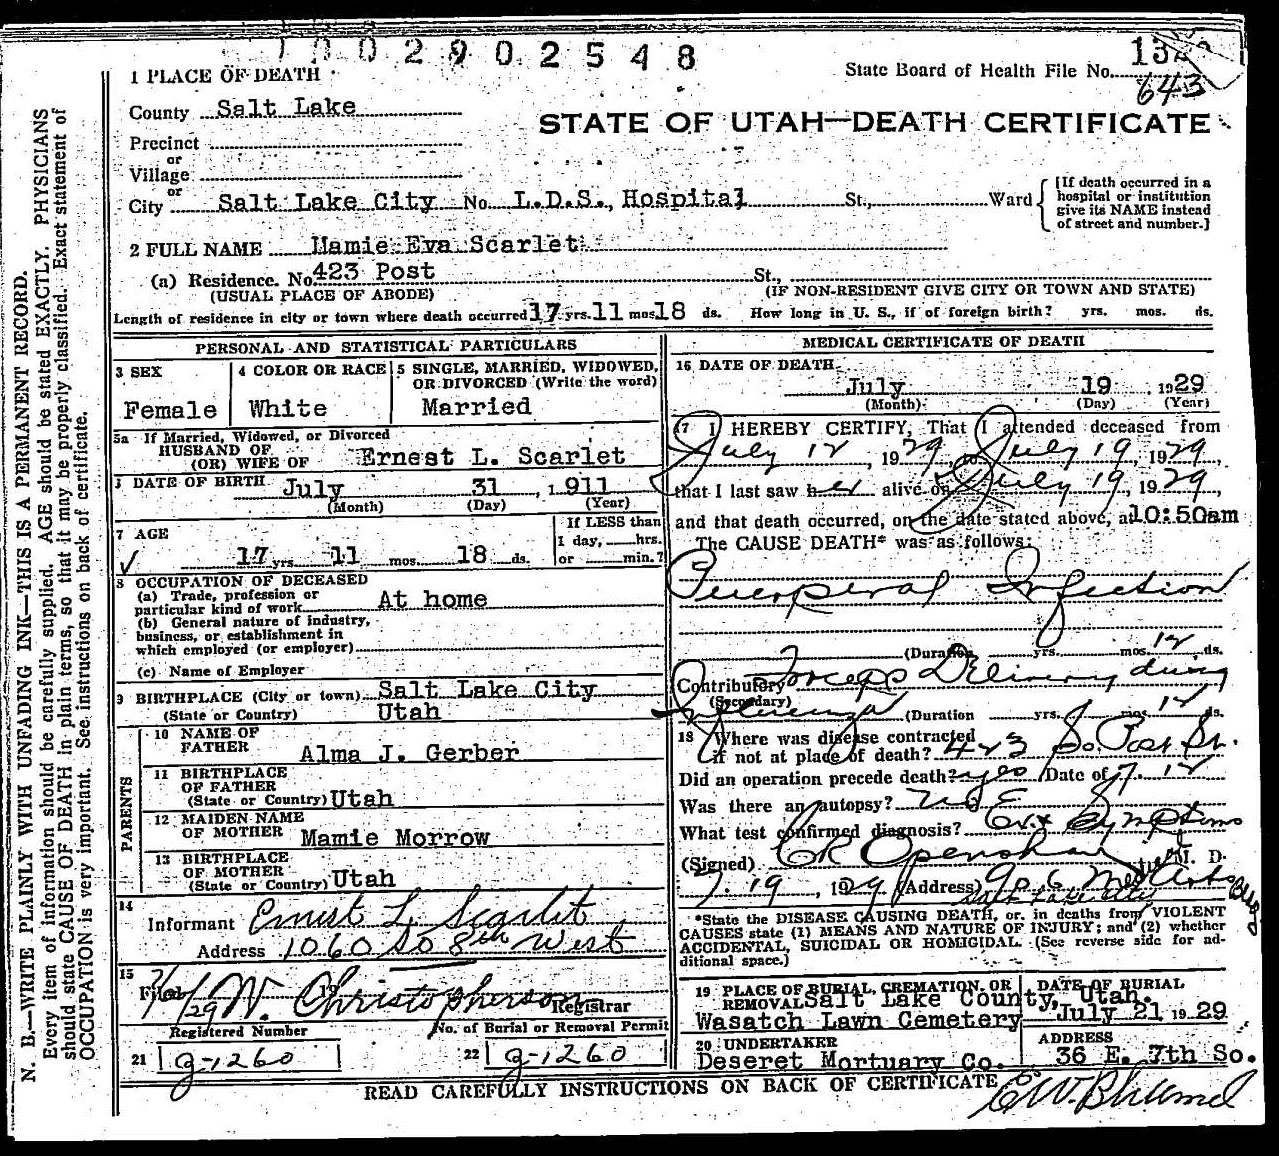 1002902548
State Board of Health File No.
643
1 PLACE OF DEATH
County Salt Lake
STATE OF UTAH—DEATH CERTIFICATE
Precinct
or
Village
or
City Salt Lake City No. L.D.S., Hospital St., Ward
[If death occurred in a hospital or institution give its NAME instead of street and number.]
2 FULL NAME Mamie Eva Scarlet
(a) Residence. No. 423 Post St.,
(USUAL PLACE OF ABODE) (IF NON-RESIDENT GIVE CITY OR TOWN AND STATE)
Length of residence in city or town where death occurred 17 yrs. 11 mos. 18 ds. How long in U. S., if of foreign birth? yrs. mos. ds.
PERSONAL AND STATISTICAL PARTICULARS
3 SEX
Female
4 COLOR OR RACE
White
5 SINGLE, MARRIED, WIDOWED, OR DIVORCED (Write the word)
Married
5a If Married, Widowed, or Divorced
HUSBAND OF
(OR) WIFE OF Ernest L. Scarlet
DATE OF BIRTH July 31, 1911
(Month) (Day) (Year)
7 AGE
17 yrs 11 mos. 18 ds.
If LESS than 1 day, hrs. or min.?
8 OCCUPATION OF DECEASED
(a) Trade, profession or particular kind of work At home
(b) General nature of industry, business, or establishment in which employed (or employer)
(c) Name of Employer
9 BIRTHPLACE (City or town) Salt Lake City
(State or Country) Utah
PARENTS
10 NAME OF FATHER Alma J. Gerber
11 BIRTHPLACE OF FATHER
(State or Country) Utah
12 MAIDEN NAME OF MOTHER Mamie Morrow
13 BIRTHPLACE OF MOTHER
(State or Country) Utah
14
Informant Ernest L. Scarlet
Address 1060 So 8th West
15
Filed W. Christopherson Registrar
Registered Number
21 g-1260
No. of Burial or Removal Permit
22 g-1260
MEDICAL CERTIFICATE OF DEATH
16 DATE OF DEATH
July 19 1929
(Month) (Day) (Year)
17 I HEREBY CERTIFY, That I attended deceased from
July 12, 1929, to July 19, 1929,
that I last saw her alive on July 19, 1929,
and that death occurred, on the date stated above, at 10:50am
The CAUSE DEATH* was as follows:
Puerperal Infection
(Duration yrs. mos. 12 ds.
Contributory Forceps Delivery during
(Secondary)
Influenza (Duration yrs. mos. 12 ds.
18 Where was disease contracted
if not at place of death? 423 So. Post St.
Did an operation precede death? yes Date of 7. 12
Was there an autopsy? no
What test confirmed diagnosis? Ex + Symptoms
(Signed) CR Openshaw M. D.
7. 19, 1929 (Address) 906 Med Arts Bldg
Salt Lake City
*State the DISEASE CAUSING DEATH, or, in deaths from VIOLENT
CAUSES state (1) MEANS AND NATURE OF INJURY; and (2) whether
ACCIDENTAL, SUICIDAL OR HOMICIDAL. (See reverse side for additional space.)
19 PLACE OF BURIAL, CREMATION, OR REMOVAL Salt Lake County, Utah.
Wasatch Lawn Cemetery
DATE OF BURIAL
July 21 1929
20 UNDERTAKER
Deseret Mortuary Co.
ADDRESS
36 E. 7th So.
READ CAREFULLY INSTRUCTIONS ON BACK OF CERTIFICATE
N. B.—WRITE PLAINLY WITH UNFADING INK—THIS IS A PERMANENT RECORD.
Every item of information should be carefully supplied. AGE should be stated EXACTLY. PHYSICIANS
should state CAUSE OF DEATH in plain terms, so that it may be properly classified. Exact statement of
OCCUPATION is very important. See instructions on back of certificate.